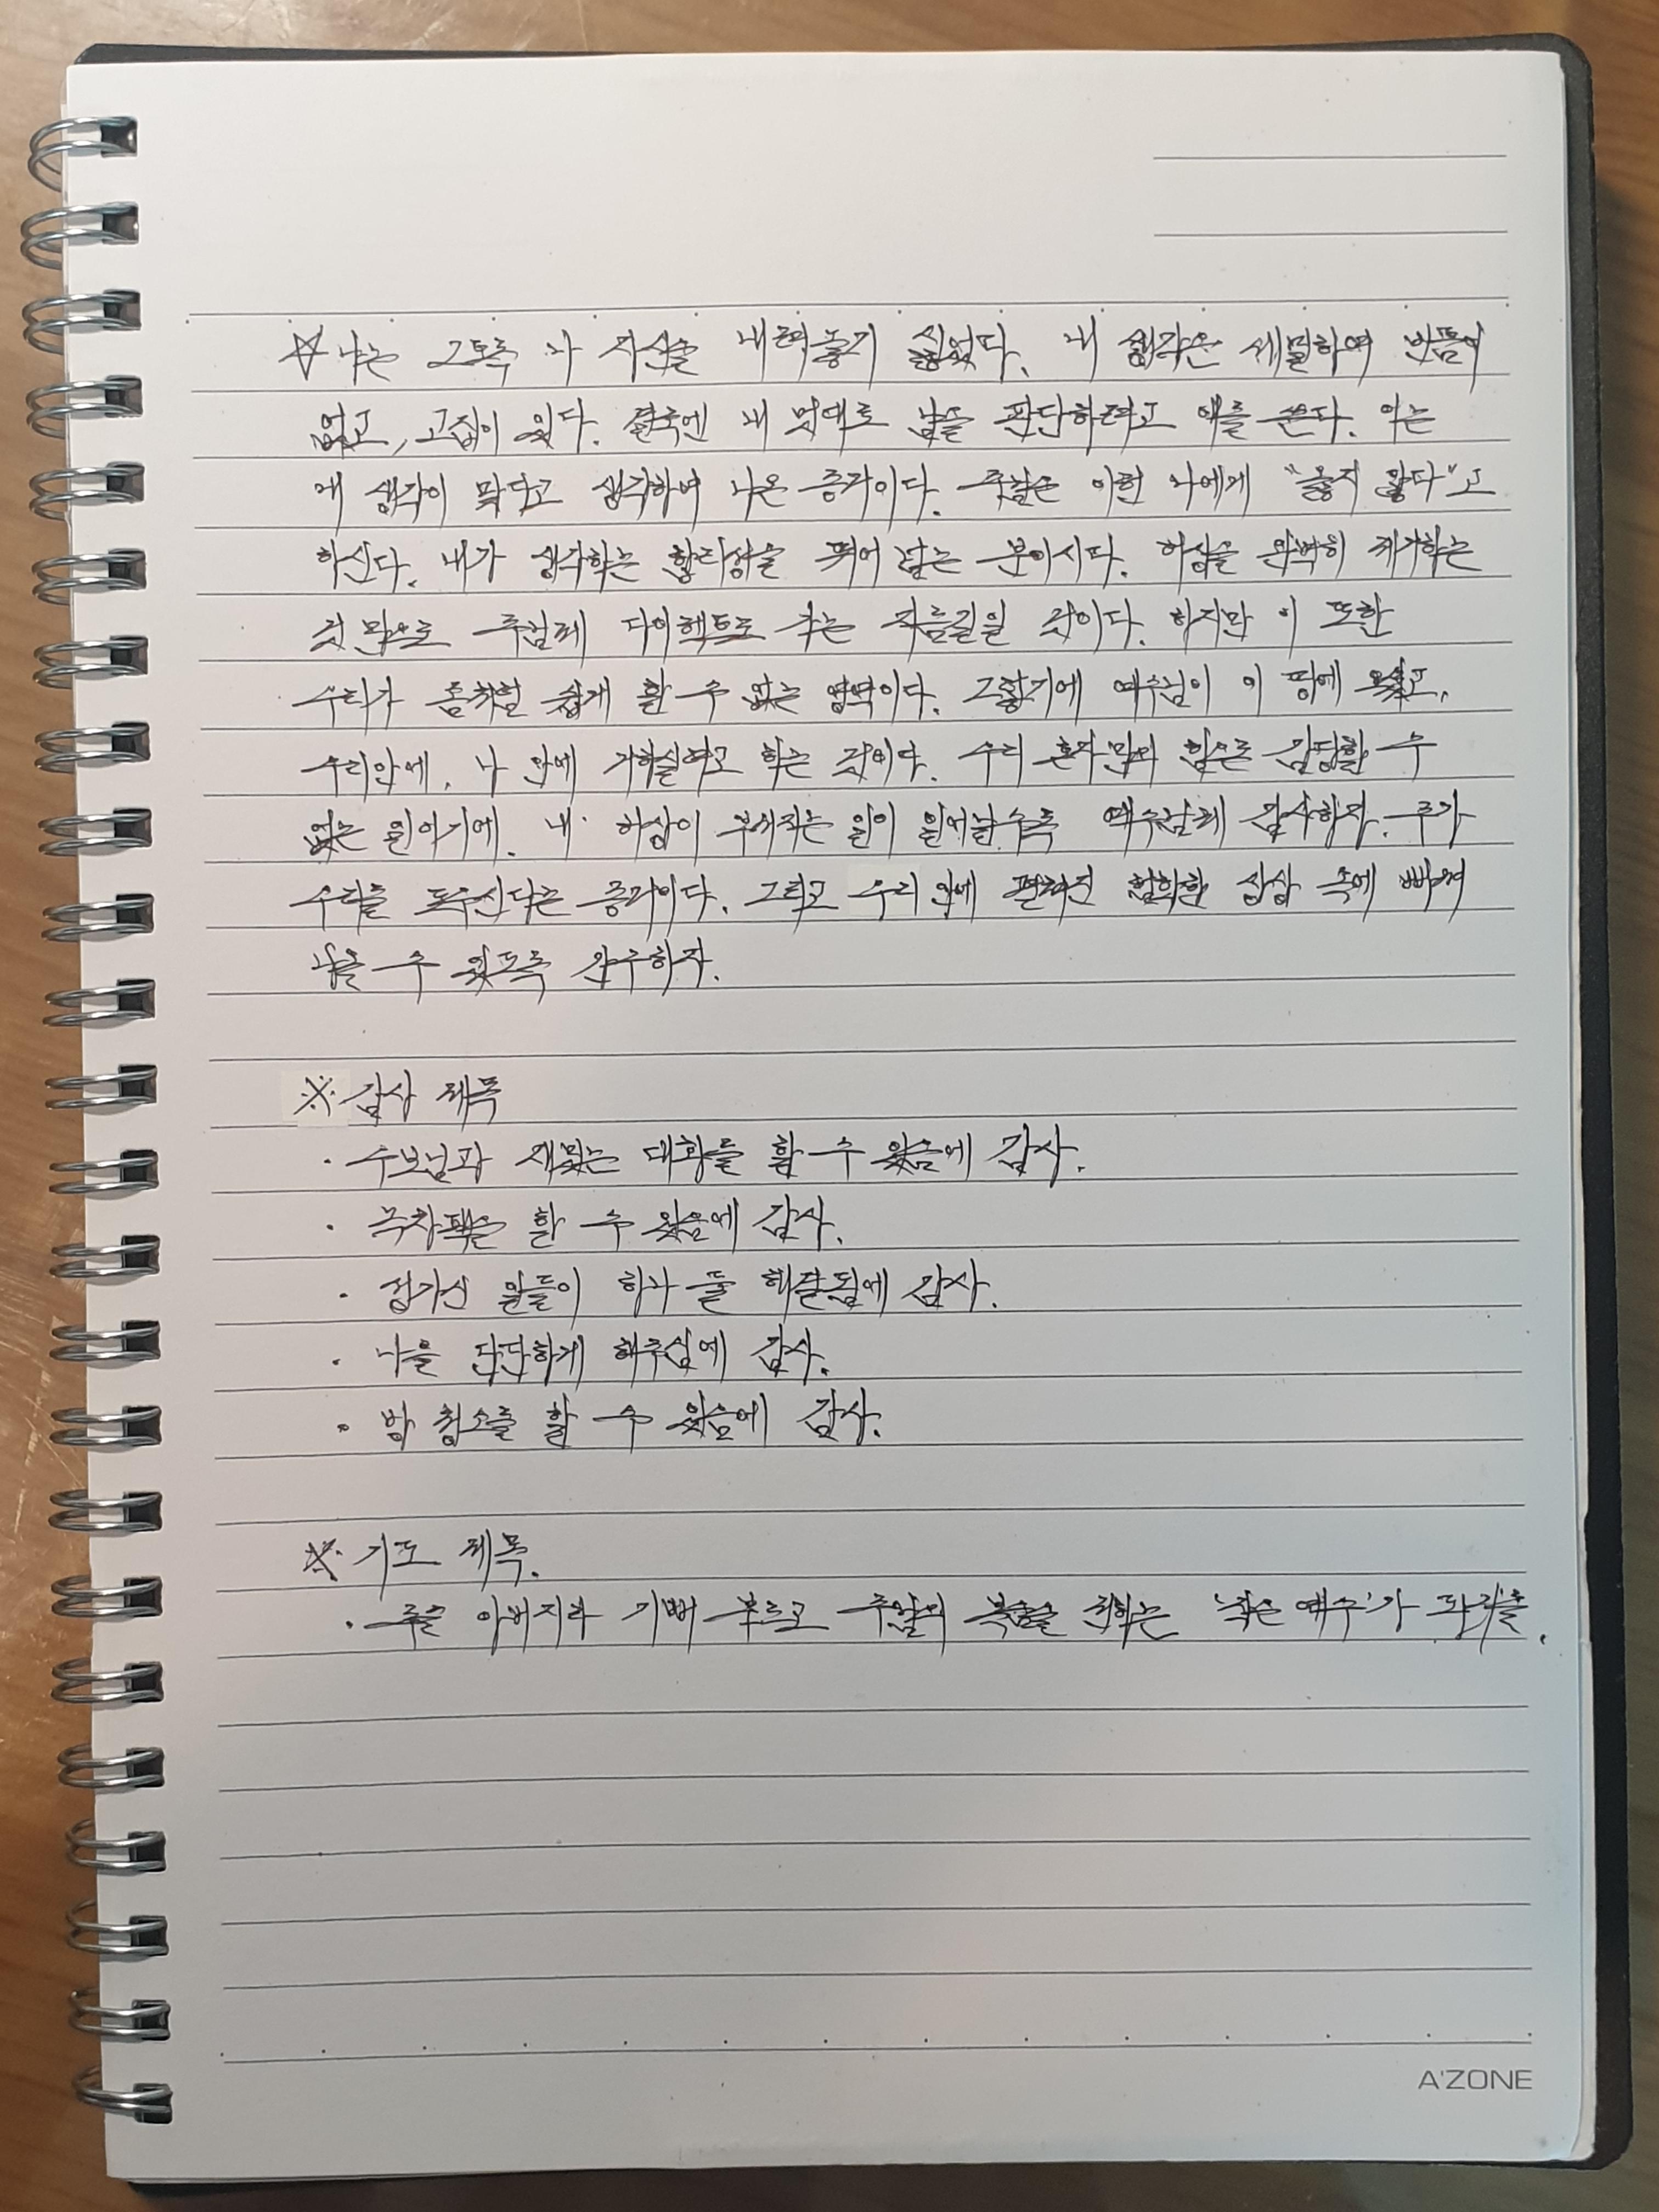 ☆ 나는 그토록 나 자신을 내려놓기 싫었다. 내 생각은 세밀하여 빈틈이
없고, 고집이 있다. 결국엔 내 멋대로 남을 판단하려고 애를 쓴다. 이는
내 생각이 맞다고 생각하여 나온 증거이다. 주님은 이런 나에게 "옳지 않다"고
하신다. 내가 생각하는 합리성을 뛰어 넘는 분이시다. 허상을 완벽히 제거하는
것 만으로 주님께 다이렉트로 가는 지름길일 것이다. 하지만 이 또한
우리가 좀처럼 쉽게 할 수 없는 영역이다. 그렇기에 예수님이 이 땅에 오셨고,
우리안에, 나 안에 거하실려고 하는 것이다. 우리 혼자만의 힘으론 감당할 수
없는 일이기에. 내 허상이 부서지는 일이 일어날수록 예수님께 감사하자. 주가
우리를 도우신다는 증거이다. 그리고 우리 안에 펼쳐진 상상 속에 빠져
나올 수 있도록 간구하자.
※ 감사 제목
· 수보님과 재밌는 대화를 할 수 있음에 감사.
· 녹차팩을 할 수 있음에 감사.
· 성가신 일들이 하나 둘 해결됨에 감사.
· 나을 단단하게 해주심에 감사.
· 방 청소를 할 수 있음에 감사.
※ 기도 제목.
· 주를 아버지라 기뻐 부르고 주님의 복음을 전하는 '작은 예수'가 되기를.
A'ZONE